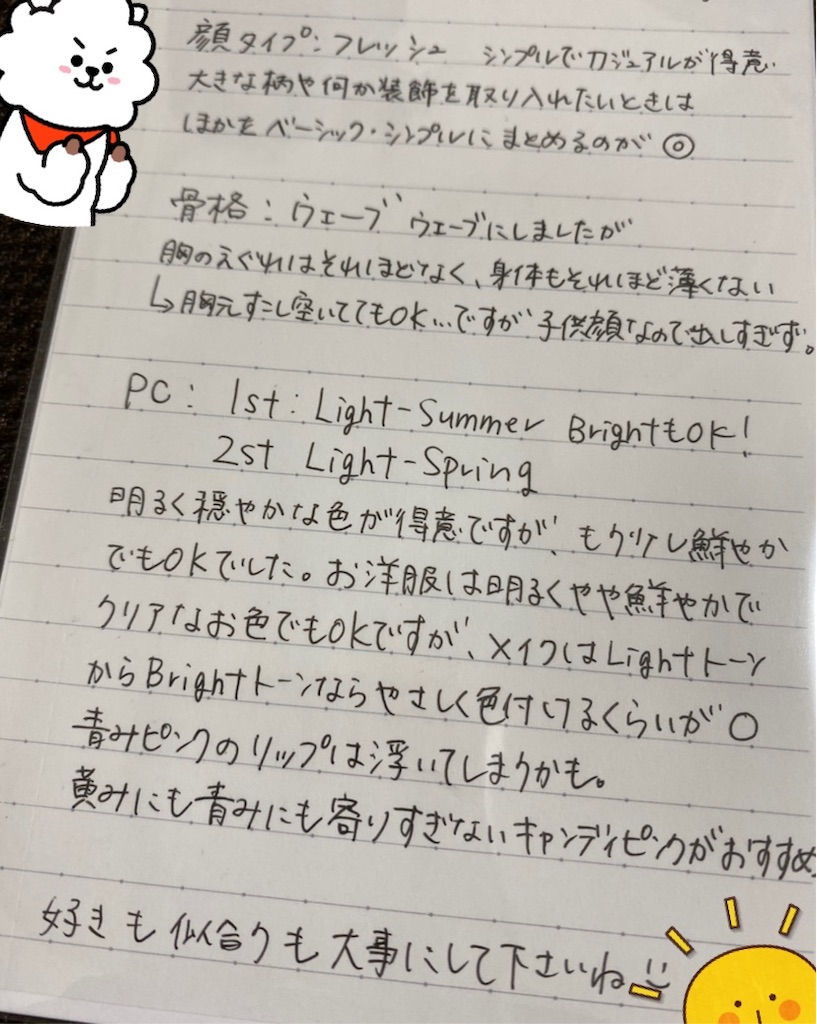 顔タイプ:フレッシュ シンプルでカジュアルが得意
大きな柄や何か装飾を取り入れたいときは
ほかをベーシック・シンプルにまとめるのが◎
骨格:ウェーブ ウェーブにしましたが
胸のえぐれはそれほどなく、身体もそれほど薄くない
↳胸元すこし空いててもOK...ですが子供顔なので出しすぎず。
PC: 1st: Light-Summer BrightもOK!
2st Light-Spring
明るく穏やかな色が得意ですが、もクリアし鮮やか
でもOKでした。お洋服は明るくやや鮮やかで
クリアなお色でもOKですが、メイクはLightトーン
からBrightトーンならやさしく色付けるくらいが○
青みピンクのリップは浮いてしまうかも。
黄みにも青みにも寄りすぎないキャンディピンクがおすすめ
好きも似合うも大事にして下さいね